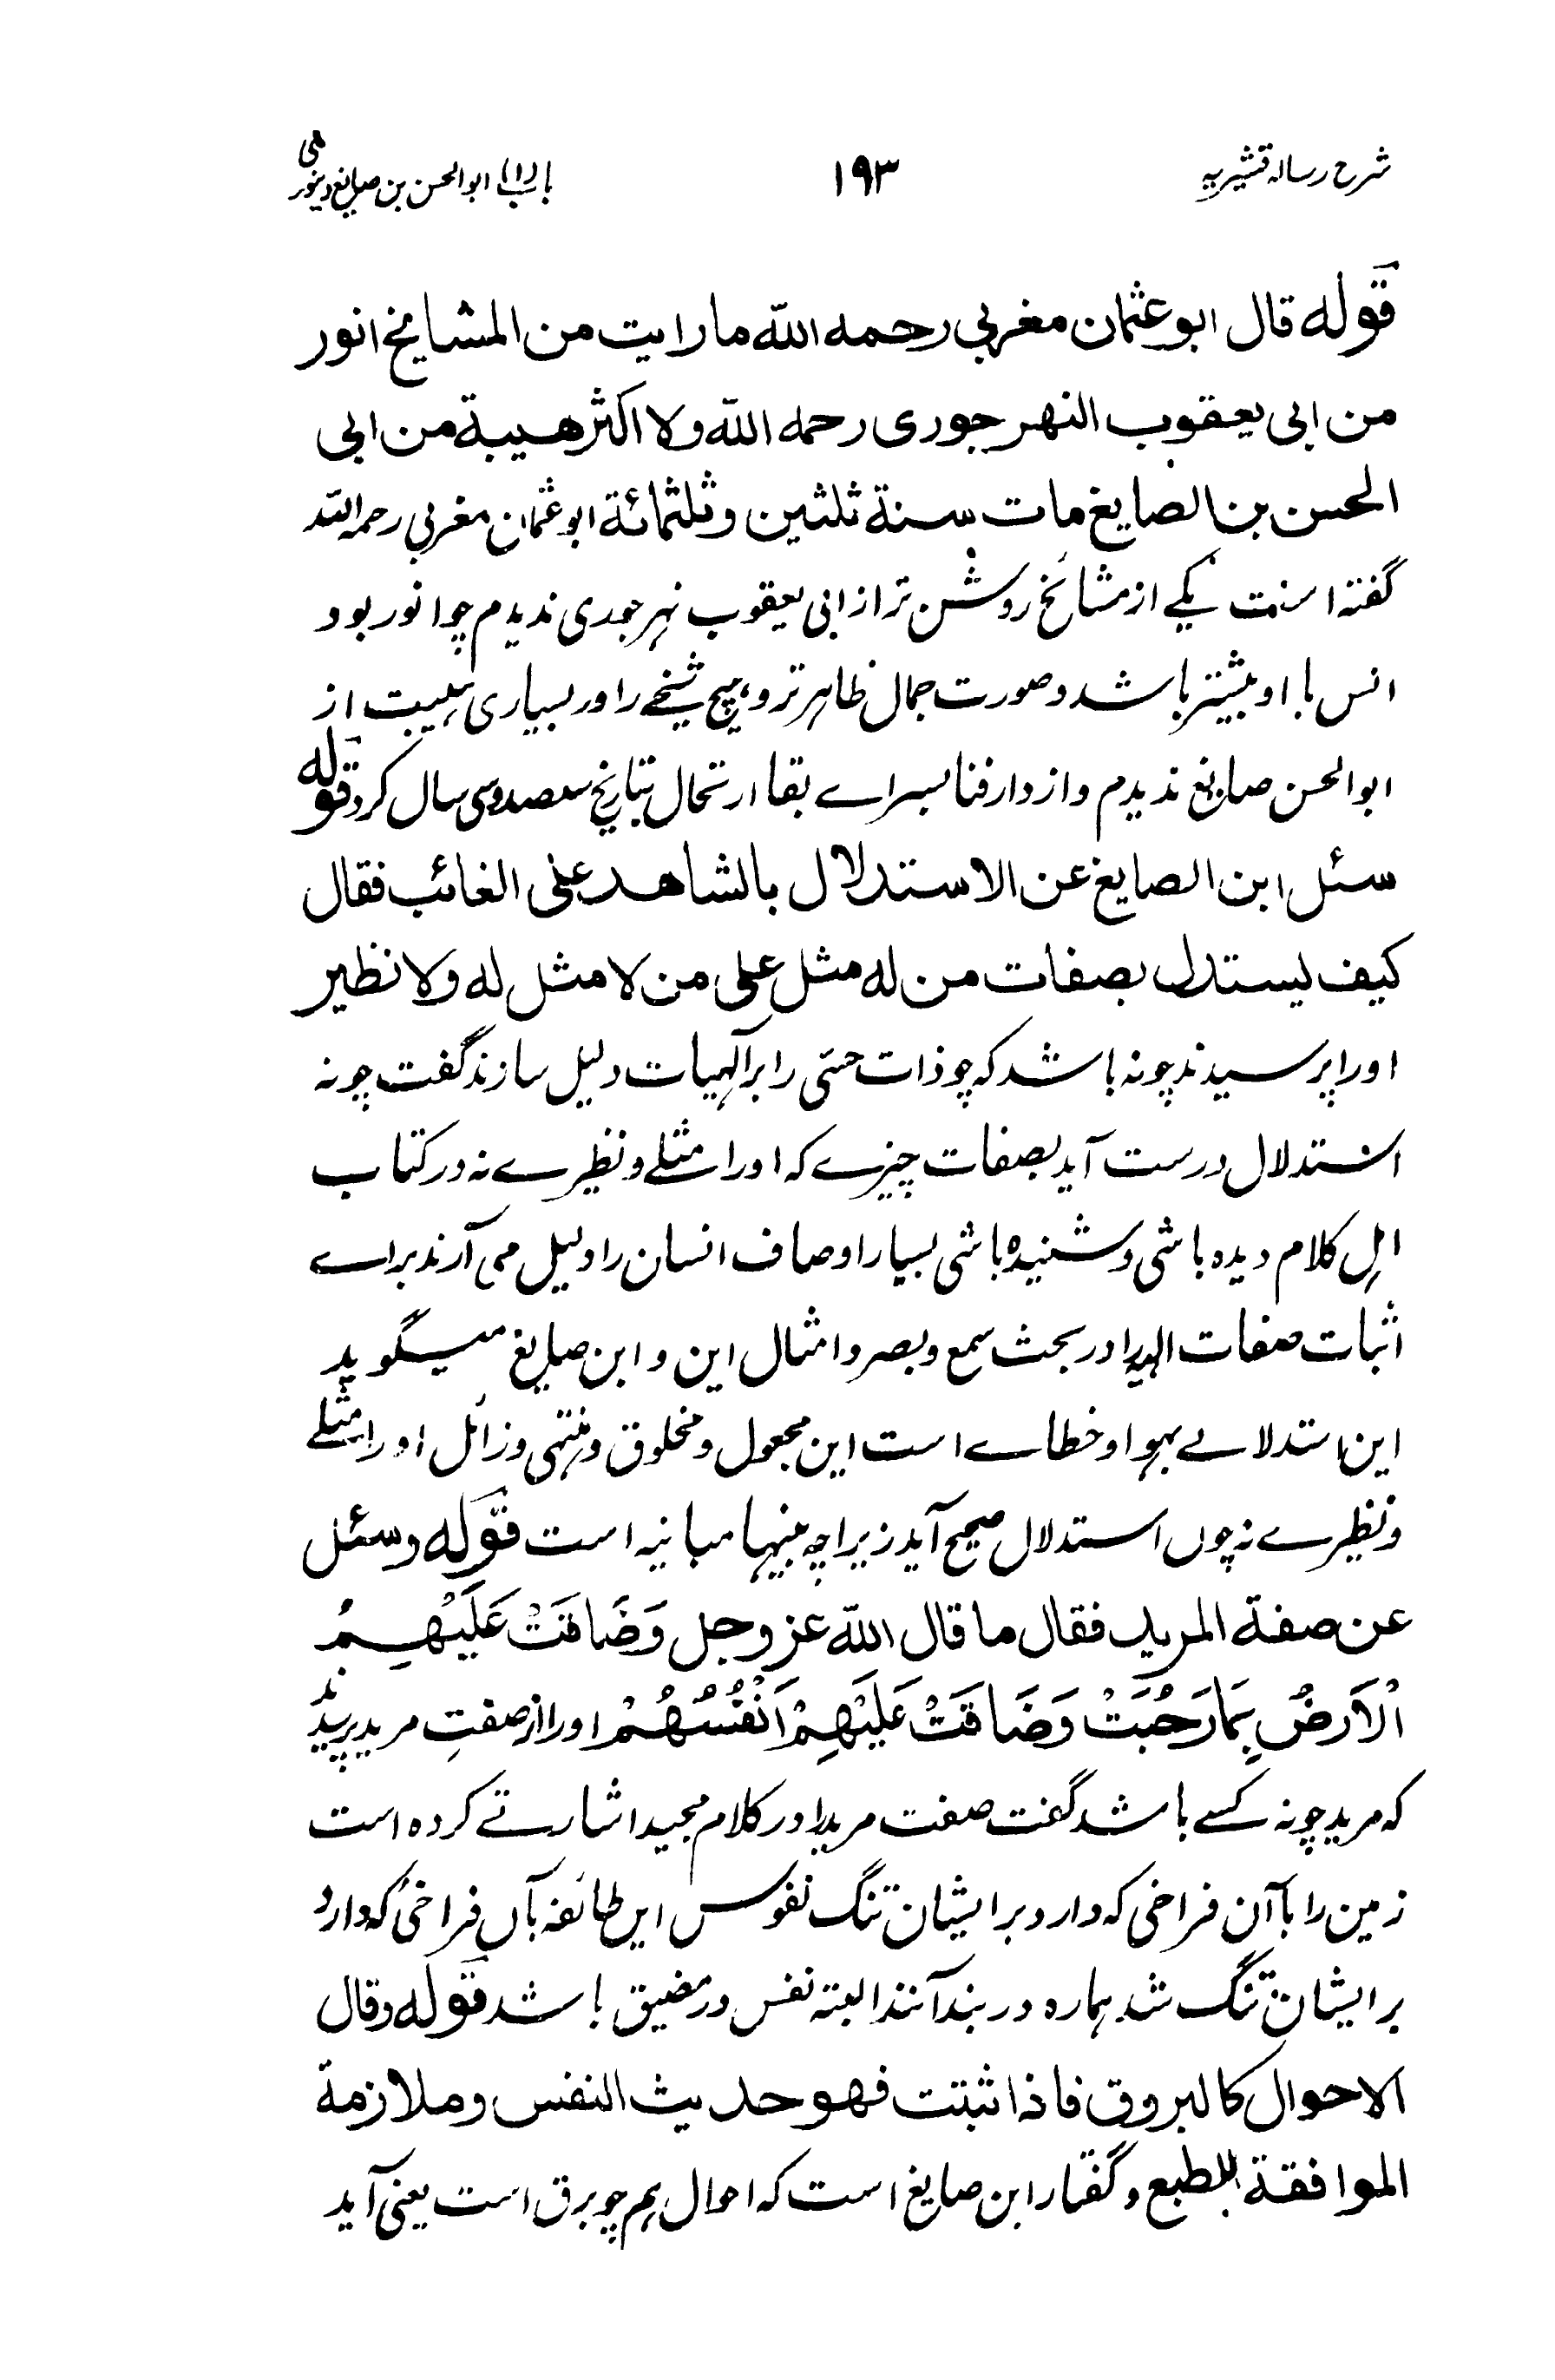 شرح رساله قشیریه ۱۹۳ باب (۱) ابوالحسن بن صایغ دینوری
قوله قال ابوعثمان مغربی رحمه الله ما رایت من المشایخ انور
من ابی یعقوب النهرجوری رحمه الله ولا اکثر هیبة من ابی
الحسن بن الصایغ مات سنة ثلثین وثلثمائة ابوعثمان مغربی رحمه الله
گفته است یکے از مشائخ روشن تر از ابی یعقوب نهرجوری ندیدم چو انور بود
انس با او بیشتر باشد وصورت جمال ظاهر تر و هیچ شیخے را در بسیاری هیبت از
ابوالحسن صایغ ندیدم و از دار فنا بسراے بقا ارتحال بتاریخ سصد وسی سال کرد قوله
سئل ابن الصایغ عن الاستدلال بالشاهد علی الغائب فقال
کیف یستدل بصفات من له مثل علی من لا مثل له ولا نظیر
اورا پرسیدند چونه باشد که چو ذات حسّی را بر آلهیات دلیل سازند گفت چونه
استدلال درست آید بصفات چیزے که اورا مثلے و نظیرے نه در کتاب
اهل کلام دیده باشی و شنیده باشی بسیار اوصاف انسان را دلیل می آرند براے
اثبات صفات الهیه را در بحث سمع و بصر و امثال این و ابن صایغ میگوید
این استدلالے بهوا و خطاے است این مجعول و مخلوق و منتهی و زائل اورا مثلے
و نظیرے نه چوں استدلال صحیح آید زیرا چه بینهما مباینه است قوله وسئل
عن صفة المرید فقال ما قال الله عز وجل وَضَاقَتْ عَلَيْهِمُ
الْاَرْضُ بِمَا رَحُبَتْ وَضَاقَتْ عَلَيْهِمْ اَنْفُسُهُمْ اورا از صفتِ مرید پرسیدند
که مرید چونه کسے باشد گفت صفت مرید را در کلام مجید اشارتے کرده است
زمین را با آن فراخی که دارد بر ایشان تنگ نفوس این طائفه باں فراخی که دارد
بر ایشان تنگ شد هماره در بند آنند البته نفس در مضیق باشد قوله وقال
الاحوال کالبروق فاذا ثبتت فهو حدیث النفس وملازمة
الموافقة للطبع و گفتار ابن صایغ است که احوال همچو برق است یعنی آید